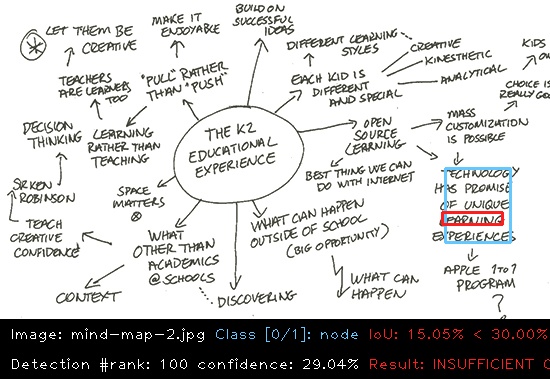 LET THEM BE
CREATIVE
MAKE IT
ENJOYABLE
BUILD ON
SUCCESSFUL
IDEAS
DIFFERENT LEARNING
STYLES
CREATIVE
KINESTHETIC
ANALYTICAL
KIDS
TEACHERS
ARE LEARNERS
TOO
"PULL" RATHER
THAN "PUSH"
EACH KID IS
DIFFERENT
AND SPECIAL
CHOICE IS
DECISION
THINKING
LEARNING
RATHER THAN
TEACHING
THE K2
EDUCATIONAL
EXPERIENCE
OPEN
SOURCE
LEARNING
MASS
CUSTOMIZATION
IS POSSIBLE
BEST THING WE CAN
DO WITH INTERNET
TECHNOLOGY
HAS PROMISE
OF UNIQUE
LEARNING
EXPERIENCES
SIR KEN
ROBINSON
SPACE
MATTERS
TEACH
CREATIVE
CONFIDENCE
WHAT
OTHER THAN
ACADEMICS
@ SCHOOLS
WHAT CAN HAPPEN
OUTSIDE OF SCHOOL
(BIG OPPORTUNITY)
APPLE 1 TO 1
PROGRAM
?
CONTEXT
DISCOVERING
WHAT CAN
HAPPEN
Image: mind-map-2.jpg Class [0/1]: node IoU: 15.05% < 30.00%
Detection #rank: 100 confidence: 29.04% Result: INSUFFICIENT